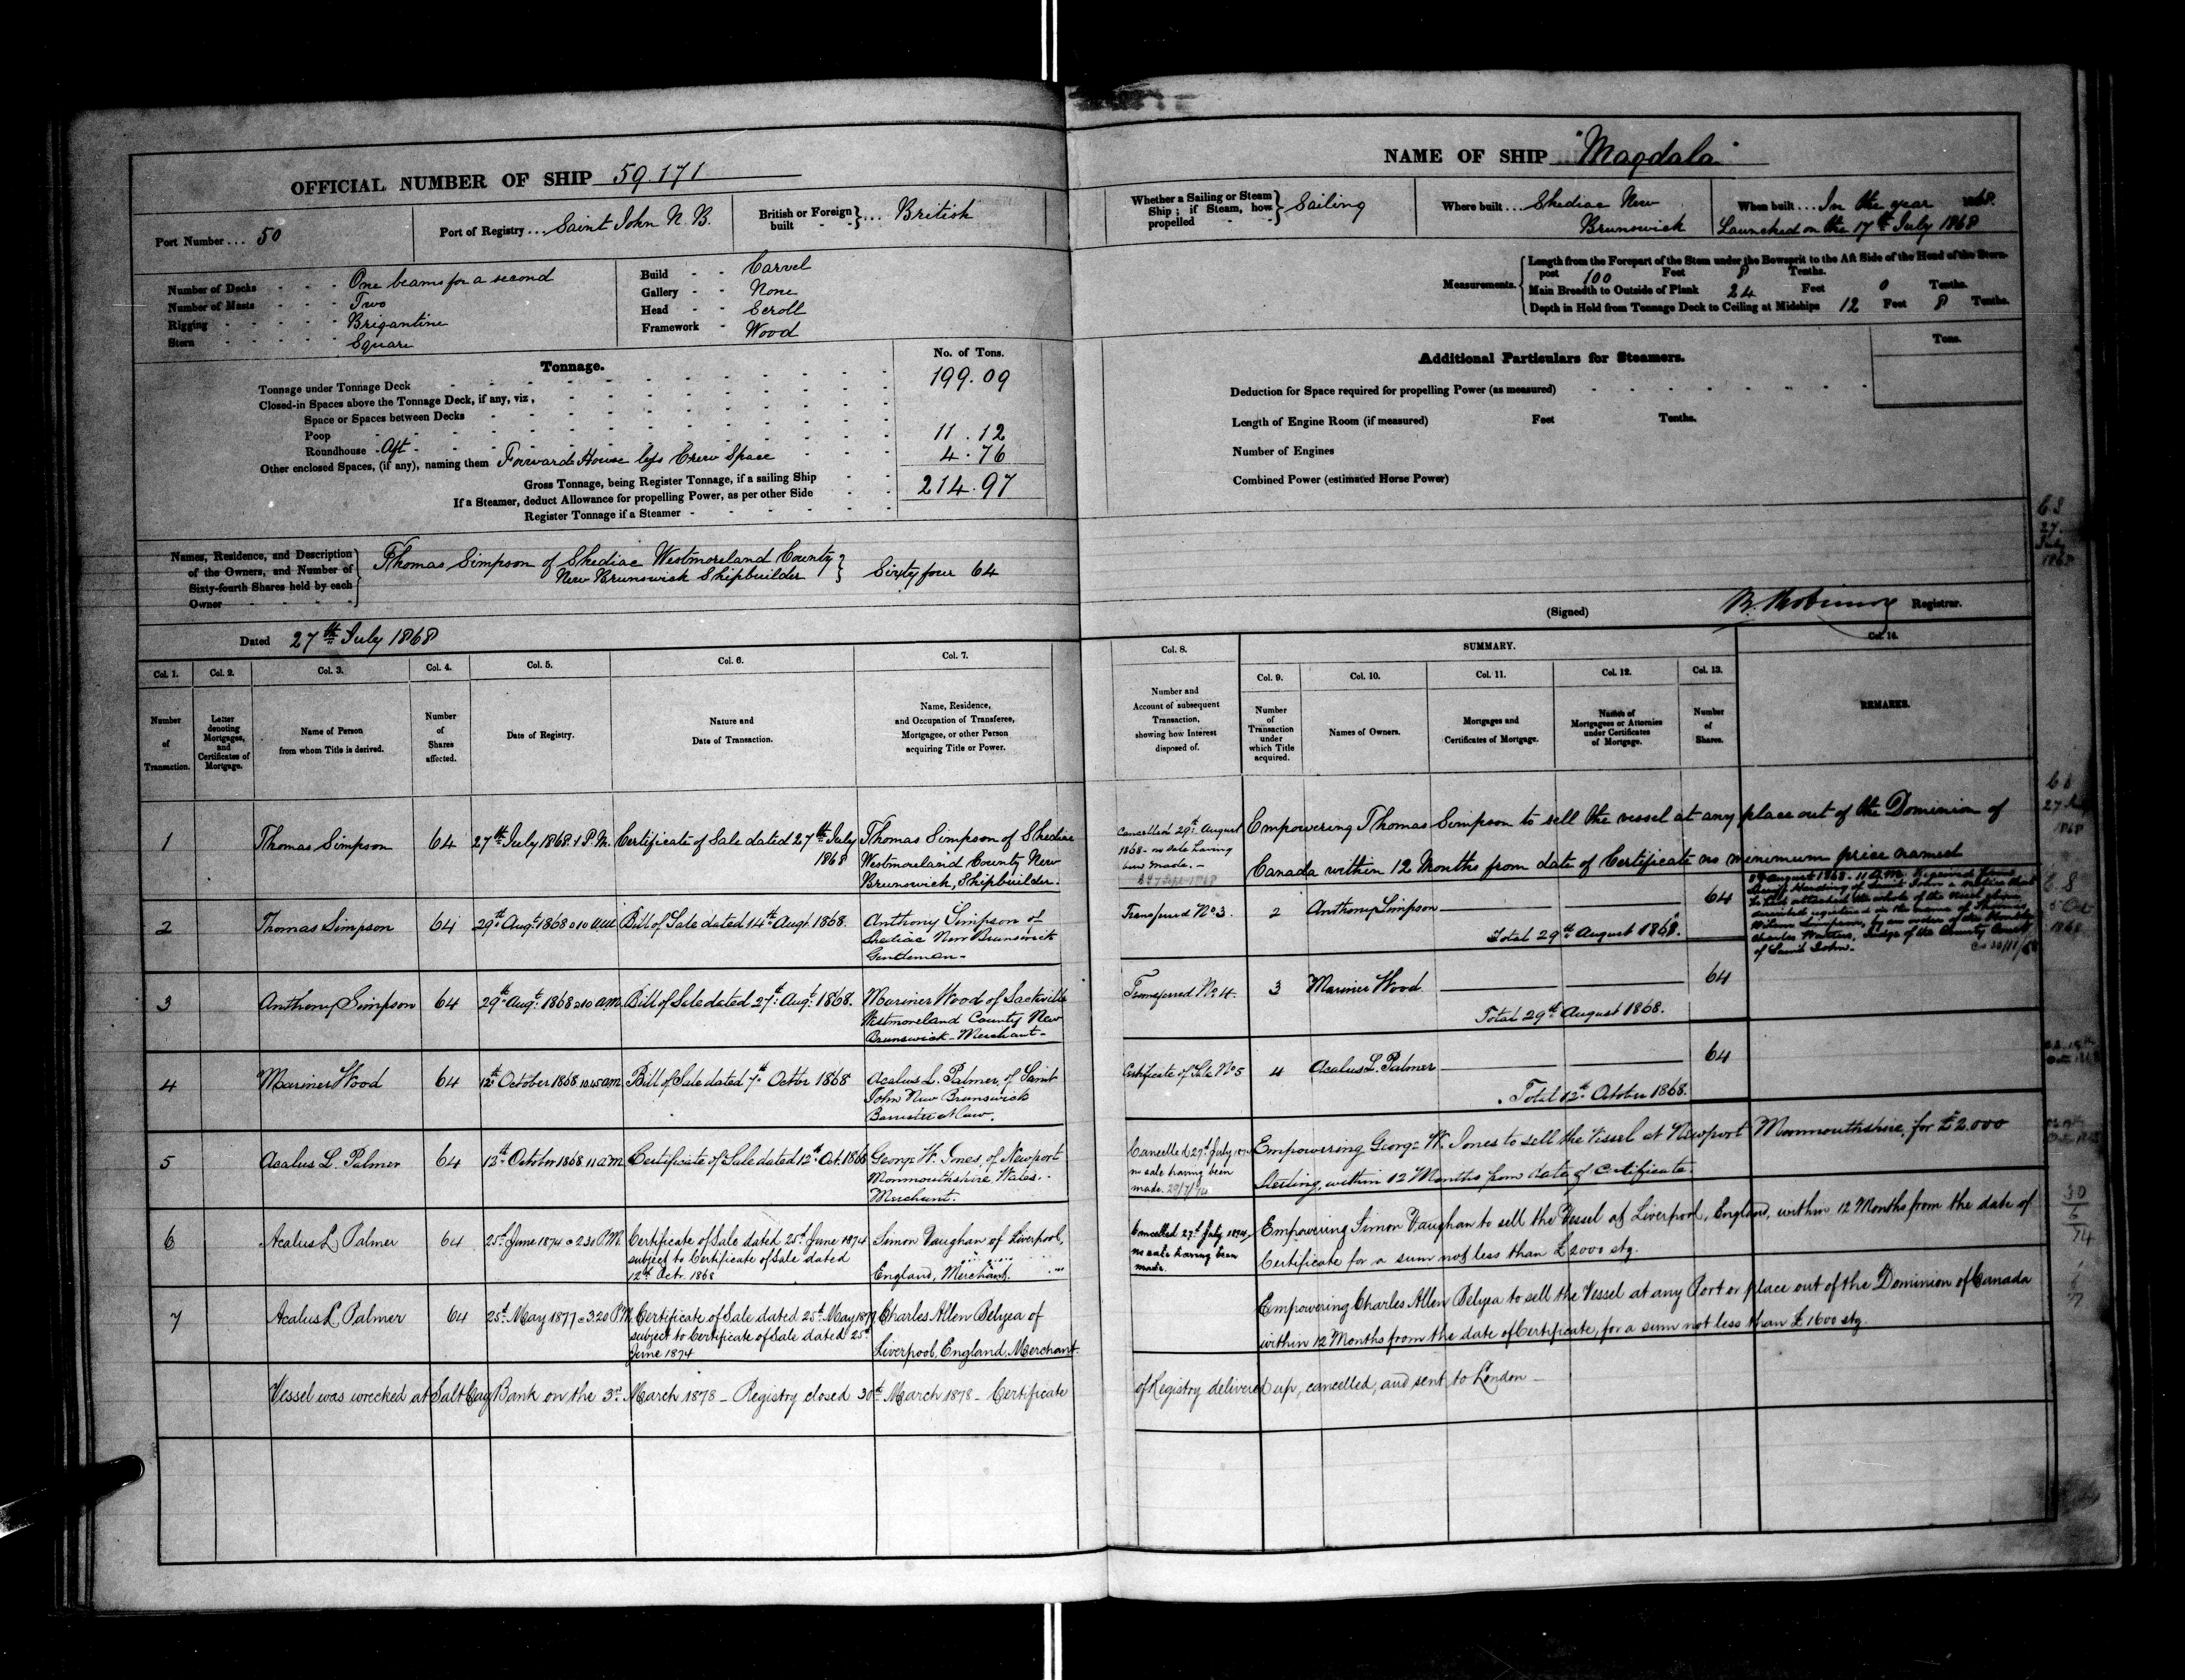 OFFICIAL NUMBER OF SHIP 59.171
Port Number... 50
Port of Registry... Saint John N.B.
British or Foreign built }... British
Number of Decks - - - One beams for a second
Number of Masts - - - Two
Rigging - - - Brigantine
Stern - - - Square
Build - - Carvel
Gallery - - None
Head - - Scroll
Framework - Wood
Tonnage.
No. of Tons.
Tonnage under Tonnage Deck 199.09
Closed-in Spaces above the Tonnage Deck, if any, viz,
Space or Spaces between Decks
Poop
Roundhouse - Aft - 11.12
Other enclosed Spaces, (if any), naming them Forward House less Crew Space 4.76
Gross Tonnage, being Register Tonnage, if a sailing Ship 214.97
If a Steamer, deduct Allowance for propelling Power, as per other Side
Register Tonnage if a Steamer
Names, Residence, and Description
of the Owners, and Number of
Sixty-fourth Shares held by each
Owner
Thomas Simpson of Shediac Westmoreland County
New Brunswick Shipbuilder } Sixty four 64
Dated 27th July 1868
NAME OF SHIP "Magdala"
Whether a Sailing or Steam Ship; if Steam, how propelled } Sailing
Where built... Shediac New
Brunswick
When built... In the year 1868.
Launched on the 17th July 1868
Measurements.
Length from the Forepart of the Stem under the Bowsprit to the Aft Side of the Head of the Stern-
post 100 Feet 8 Tenths.
Main Breadth to Outside of Plank 24 Feet 0 Tenths.
Depth in Hold from Tonnage Deck to Ceiling at Midships 12 Feet 8 Tenths.
Additional Particulars for Steamers.
Tons.
Deduction for Space required for propelling Power (as measured)
Length of Engine Room (if measured) Feet Tenths.
Number of Engines
Combined Power (estimated Horse Power)
(Signed) Registrar.
Col. 1. Col. 2. Col. 3. Col. 4. Col. 5. Col. 6. Col. 7.
Number of Transaction.
Letter denoting Mortgages, and Certificates of Mortgage.
Name of Person from whom Title is derived.
Number of Shares affected.
Date of Registry.
Nature and Date of Transaction.
Name, Residence, and Occupation of Transferee, Mortgagee, or other Person acquiring Title or Power.
Col. 8. SUMMARY. Col. 14.
Col. 9. Col. 10. Col. 11. Col. 12. Col. 13.
Number and Account of subsequent Transaction, showing how Interest disposed of.
Number of Transaction under which Title acquired.
Names of Owners.
Mortgages and Certificates of Mortgage.
Names of Mortgagees or Attornies under Certificates of Mortgage.
Number of Shares.
REMARKS.
1 Thomas Simpson 64 27th July 1868. 1 P.M. Certificate of Sale dated 27th July
1868
Thomas Simpson of Shediac
Westmoreland County New
Brunswick, Shipbuilder.
Cancelled 29th August
1868 - no sale having
been made. -
Empowering Thomas Simpson to sell the vessel at any place out of the Dominion of
Canada within 12 Months from date of Certificate no minimum price named
2 Thomas Simpson 64 29th Augt. 1868 Bill of Sale dated 14th Augt. 1868.
Anthony Simpson of
Shediac New Brunswick
Gentleman -
Transferred No 3. 2 Anthony Simpson 64
Total 29th August 1868.
August 1868 - 11 A.M. Received from
Sheriff Harding of Saint John a notice that
he had attached the whole of the
described registered in the name of Thomas
Simpson, by an order of the
Charles Watters, Judge of the County Court
of Saint John.
3 Anthony Simpson 64 29th Augt. 1868 a.m. Bill of Sale dated 27th Augt. 1868.
Mariner Wood of Sackville
Westmoreland County New
Brunswick - Merchant -
Transferred No 4. 3 Mariner Wood 64
Total 29th August 1868.
4 Mariner Wood 64 12th October 1868 10.45 am Bill of Sale dated 7th Octbr 1868
Acalus L. Palmer, of Saint
John New Brunswick
Barrister at Law.
Certificate of Sale No 5 4 Acalus L. Palmer 64
Total 12th October 1868.
5 Acalus L. Palmer 64 13th October 1868 11 am Certificate of Sale dated 12th Oct. 1868
George W. Jones, of Newport
Monmouthshire, Wales.
Merchant.
Cancelled 27th July
no sale having been
made.
Empowering George W. Jones to sell the Vessel at Newport Monmouthshire, for £2.000
Sterling, within 12 Months from date of Certificate.
6 Acalus L Palmer 64 25th June 1874 @ 2.30 P.M. Certificate of Sale dated 25th June 1874
subject to Certificate of Sale dated
12th Octr. 1868
Simon Vaughan of Liverpool,
England, Merchant.
Cancelled 27th July 1874,
no sale having been
made.
Empowering Simon Vaughan to sell the Vessel at Liverpool, England, within 12 Months from the date of
Certificate for a sum not less than £2000 stg.
7 Acalus L Palmer 64 25th May 1877 @ 3.20 P.M. Certificate of Sale dated 25th May 1877
subject to Certificate of Sale dated 25th
June 1874
Charles Allen Belyea of
Liverpool, England, Merchant.
Empowering Charles Allen Belyea to sell the Vessel at any Port or place out of the Dominion of Canada
within 12 Months from the date of Certificate, for a sum not less than £1600 stg.
Vessel was wrecked at Salt Cay Bank on the 3rd March 1878 - Registry closed 30th March 1878 - Certificate
of Registry delivered up, cancelled, and sent to London -